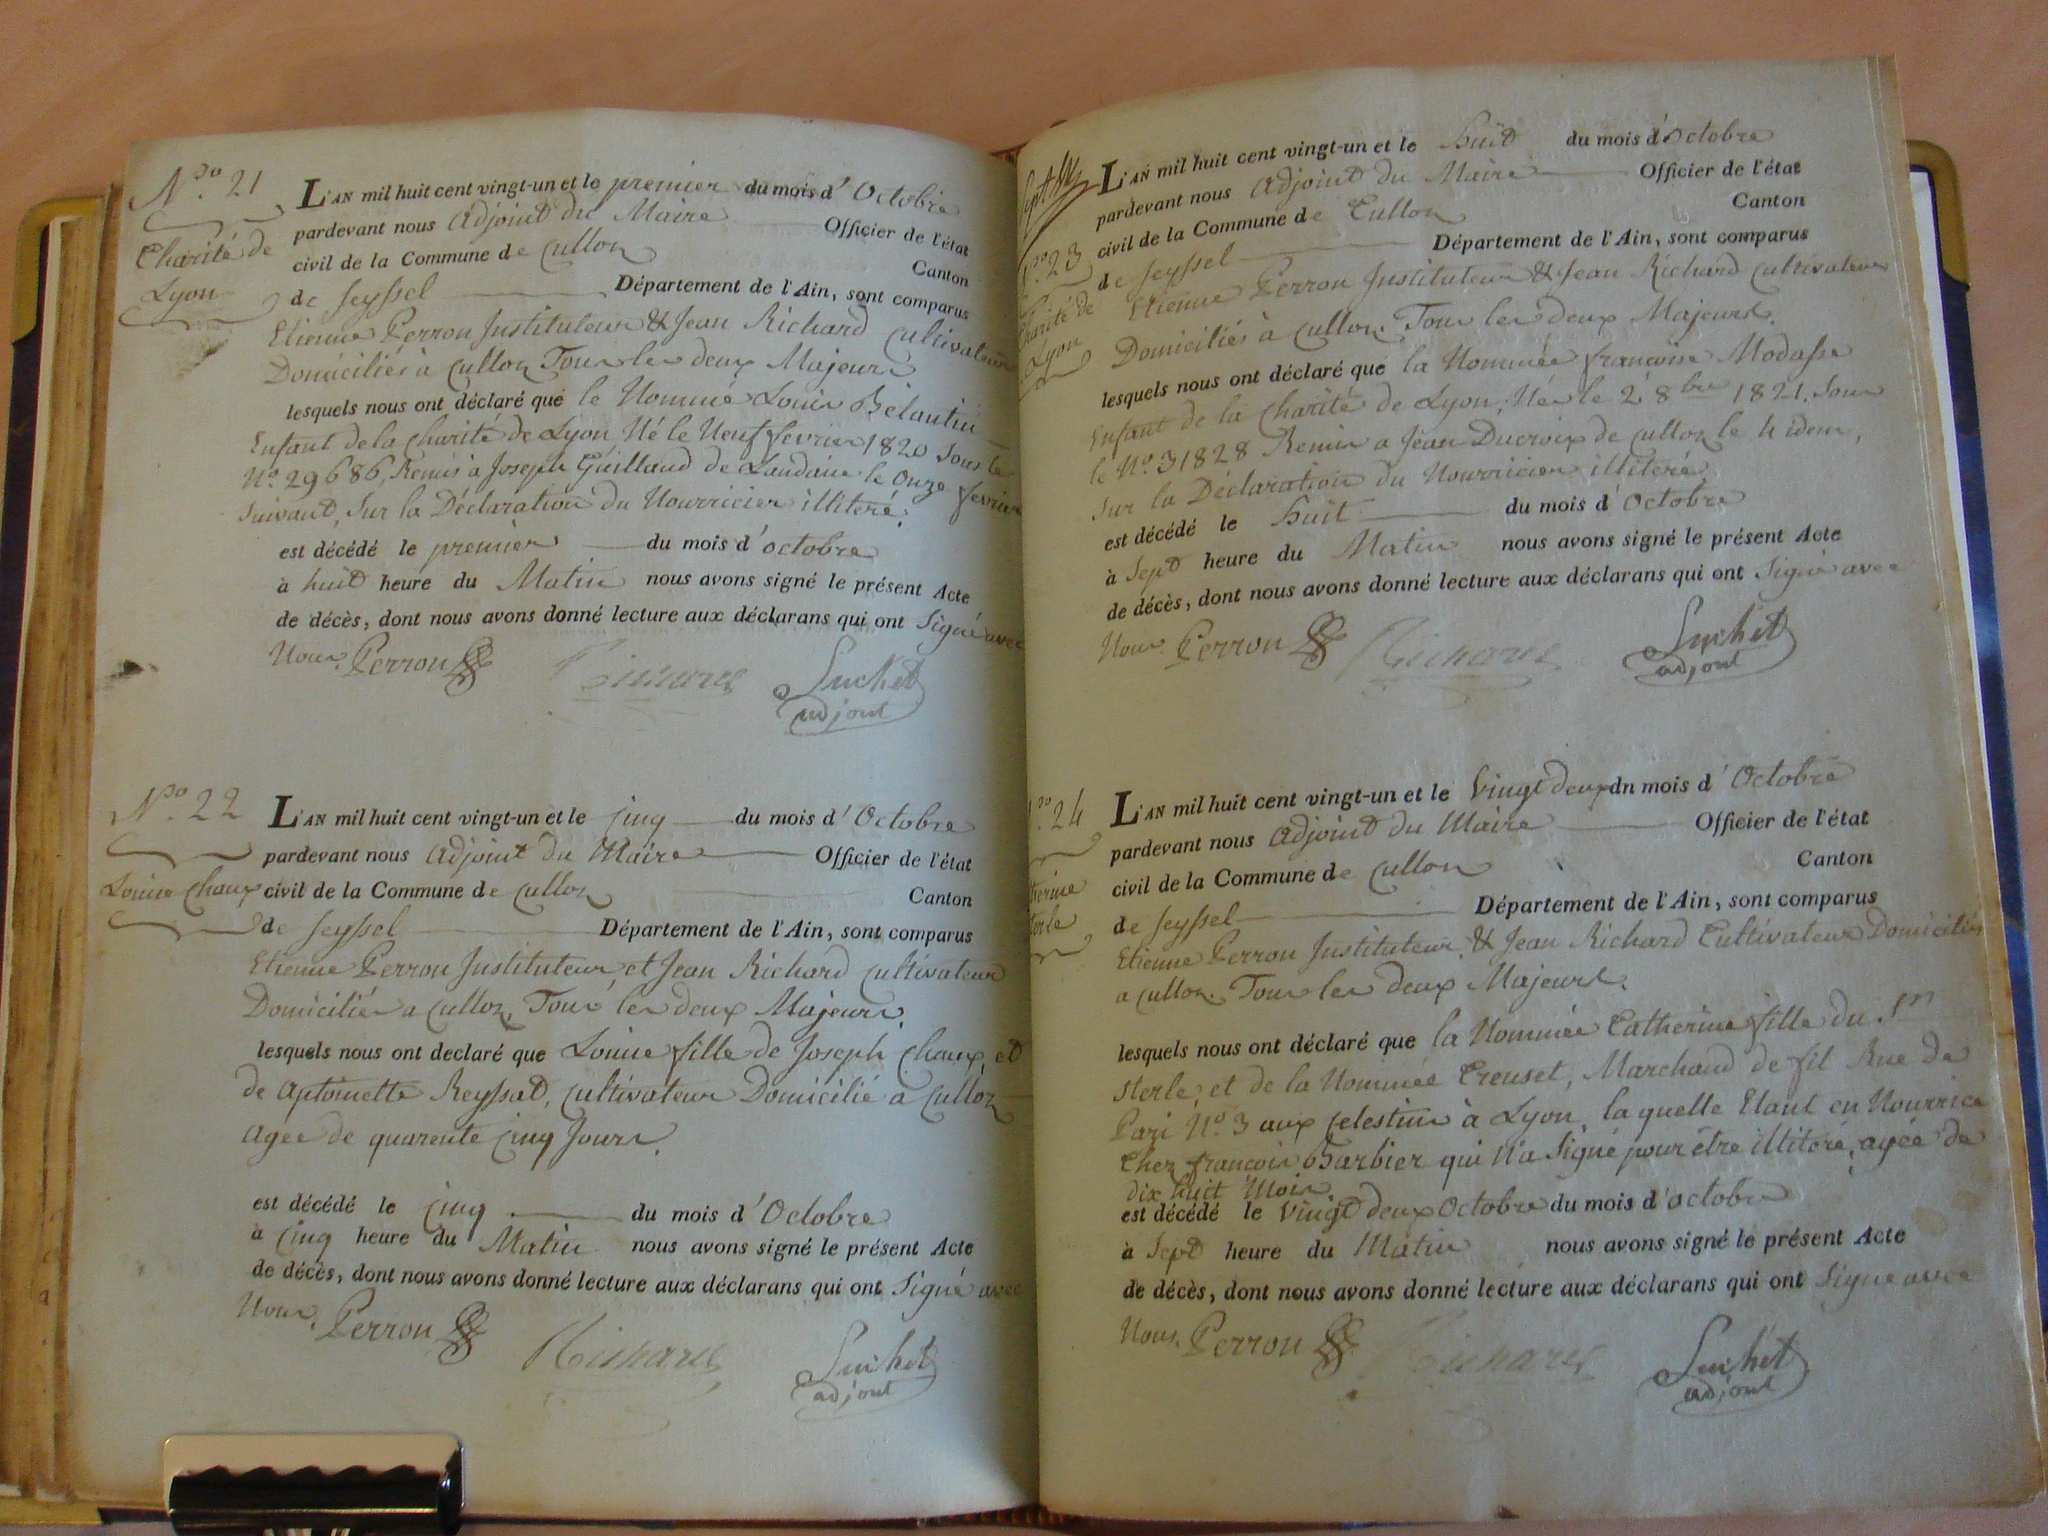 N.º 21
Charité de
Lyon
L'AN mil huit cent vingt-un et le premier du mois d'Octobre
pardevant nous Adjoint du Maire Officier de l'état
civil de la Commune de Culloz Canton
de Seyssel Département de l'Ain, sont comparus
Etienne Perron Instituteur & Jean Richard Cultivateur
Domiciliés à Culloz Tous les deux Majeurs
lesquels nous ont déclaré que le Nommé Louis Bélantin
Enfant de la Charité de Lyon Né le Neuf fevrier 1820 sous le
N.º 29686, Remis à Joseph Guillaud de Landaise le Onze fevrier
suivant, sur la Déclaration du Nourricier illiteré.
est décédé le premier du mois d'octobre
à huit heure du Matin nous avons signé le présent Acte
de décès, dont nous avons donné lecture aux déclarans qui ont Signé avec
Nous. Perron Richard Suchet
adjoint
N.º 22
Louise Chaux
L'AN mil huit cent vingt-un et le cinq du mois d'Octobre
pardevant nous Adjoint du Maire Officier de l'état
civil de la Commune de Culloz Canton
de Seyssel Département de l'Ain, sont comparus
Etienne Perron Instituteur et Jean Richard Cultivateur
Domiciliés a Culloz, Tous les deux Majeurs.
lesquels nous ont declaré que Louise fille de Joseph Chaux, et
de Antoinette Reyssat, Cultivateur Domicilié a Culloz
Agée de quarente cinq Jours.
est décédé le cinq du mois d'Octobre
à Cinq heure du Matin nous avons signé le présent Acte
de décès, dont nous avons donné lecture aux déclarans qui ont Signé avec
Nous. Perron Richard Suchet
adjoint
N.º 23
Charité de
Lyon
L'AN mil huit cent vingt-un et le Huit du mois d'Octobre
pardevant nous Adjoint du Maire Officier de l'état
civil de la Commune de Culloz Canton
de Seyssel Département de l'Ain, sont comparus
Etienne Perron Instituteur & Jean Richard Cultivateur
Domiciliés à Culloz. Tous les deux Majeurs.
lesquels nous ont déclaré que la Nommée françoise Modasse
Enfant de la Charité de Lyon, Née le 2 8bre 1821. Sous
le N.º 31828 Remis a Jean Ducroix de Culloz le 4 idem,
sur la Déclaration du Nourricier illiteré
est décédé le Huit du mois d'Octobre
à Sept heure du Matin nous avons signé le présent Acte
de décès, dont nous avons donné lecture aux déclarans qui ont Signé avec
Nous. Perron Richard Suchet
adjoint
º 24
therine
terle
L'AN mil huit cent vingt-un et le Vingt deux du mois d'Octobre
pardevant nous Adjoint du Maire Officier de l'état
civil de la Commune de Culloz Canton
de Seyssel Département de l'Ain, sont comparus
Etienne Perron Instituteur. & Jean Richard Cultivateur Domiciliés
a Culloz. Tous les deux Majeurs.
lesquels nous ont déclaré que la Nommée Catherine fille du Sr
Sterle, et de la Nommée Creuset, Marchand de fil Rue de
Pazi N.º 3 aux Celestins à Lyon, la quelle Etant en Nourrice
Chez françois Barbier qui N'a Signé pour être illiteré, agée de
dix huit Mois.
est décédé le Vingt deux Octobre du mois d'octobre
à Sept heure du Matin nous avons signé le présent Acte
de décès, dont nous avons donné lecture aux déclarans qui ont Signé avec
Nous. Perron Richard Suchet
adjoint